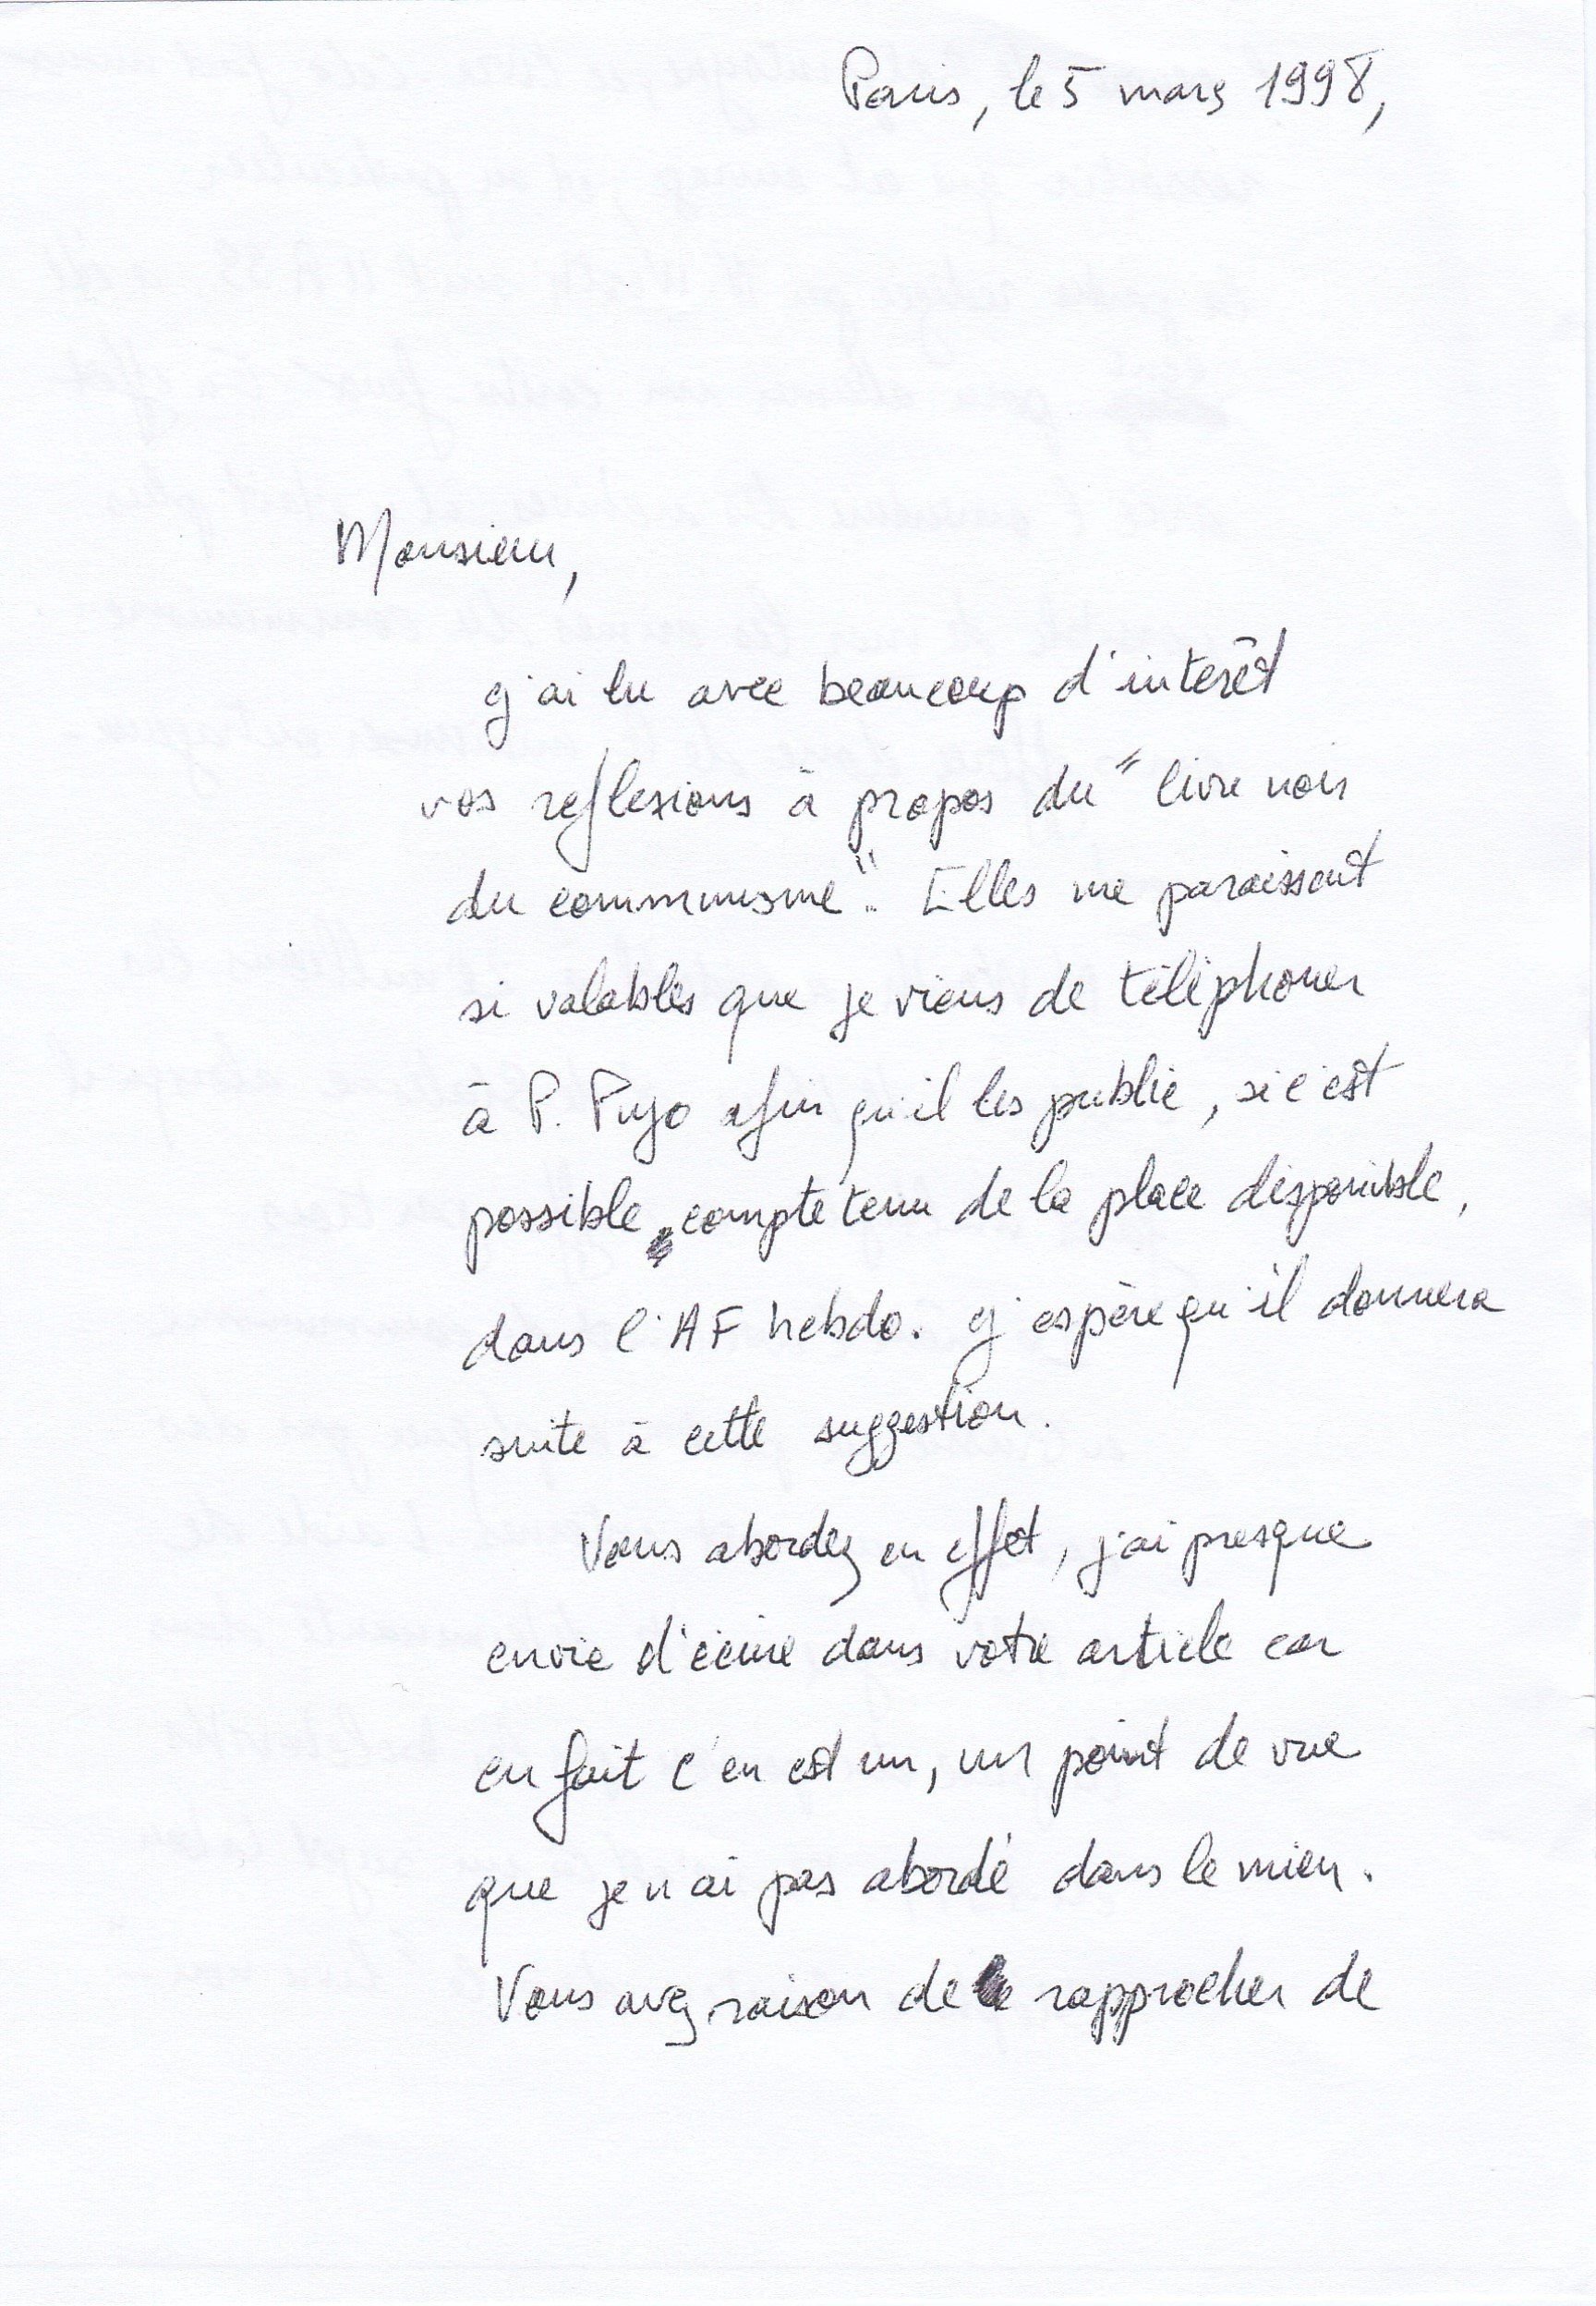 Paris, le 5 mars 1998,
Monsieur,
J'ai lu avec beaucoup d'interêt
vos reflexions à propos du "livre noir
du communisme". Elles me paraissent
si valables que je viens de téléphoner
à P. Pujo afin qu'il les publie, si c'est
possible, compte tenu de la place disponible,
dans l'AF hebdo. J'espère qu'il donnera
suite à cette suggestion.
Vous abordez en effet, j'ai presque
envie d'écrire dans votre article car
en fait c'en est un, un point de vue
que je n'ai pas abordé dans le mien.
Vous avez raison de rapprocher de